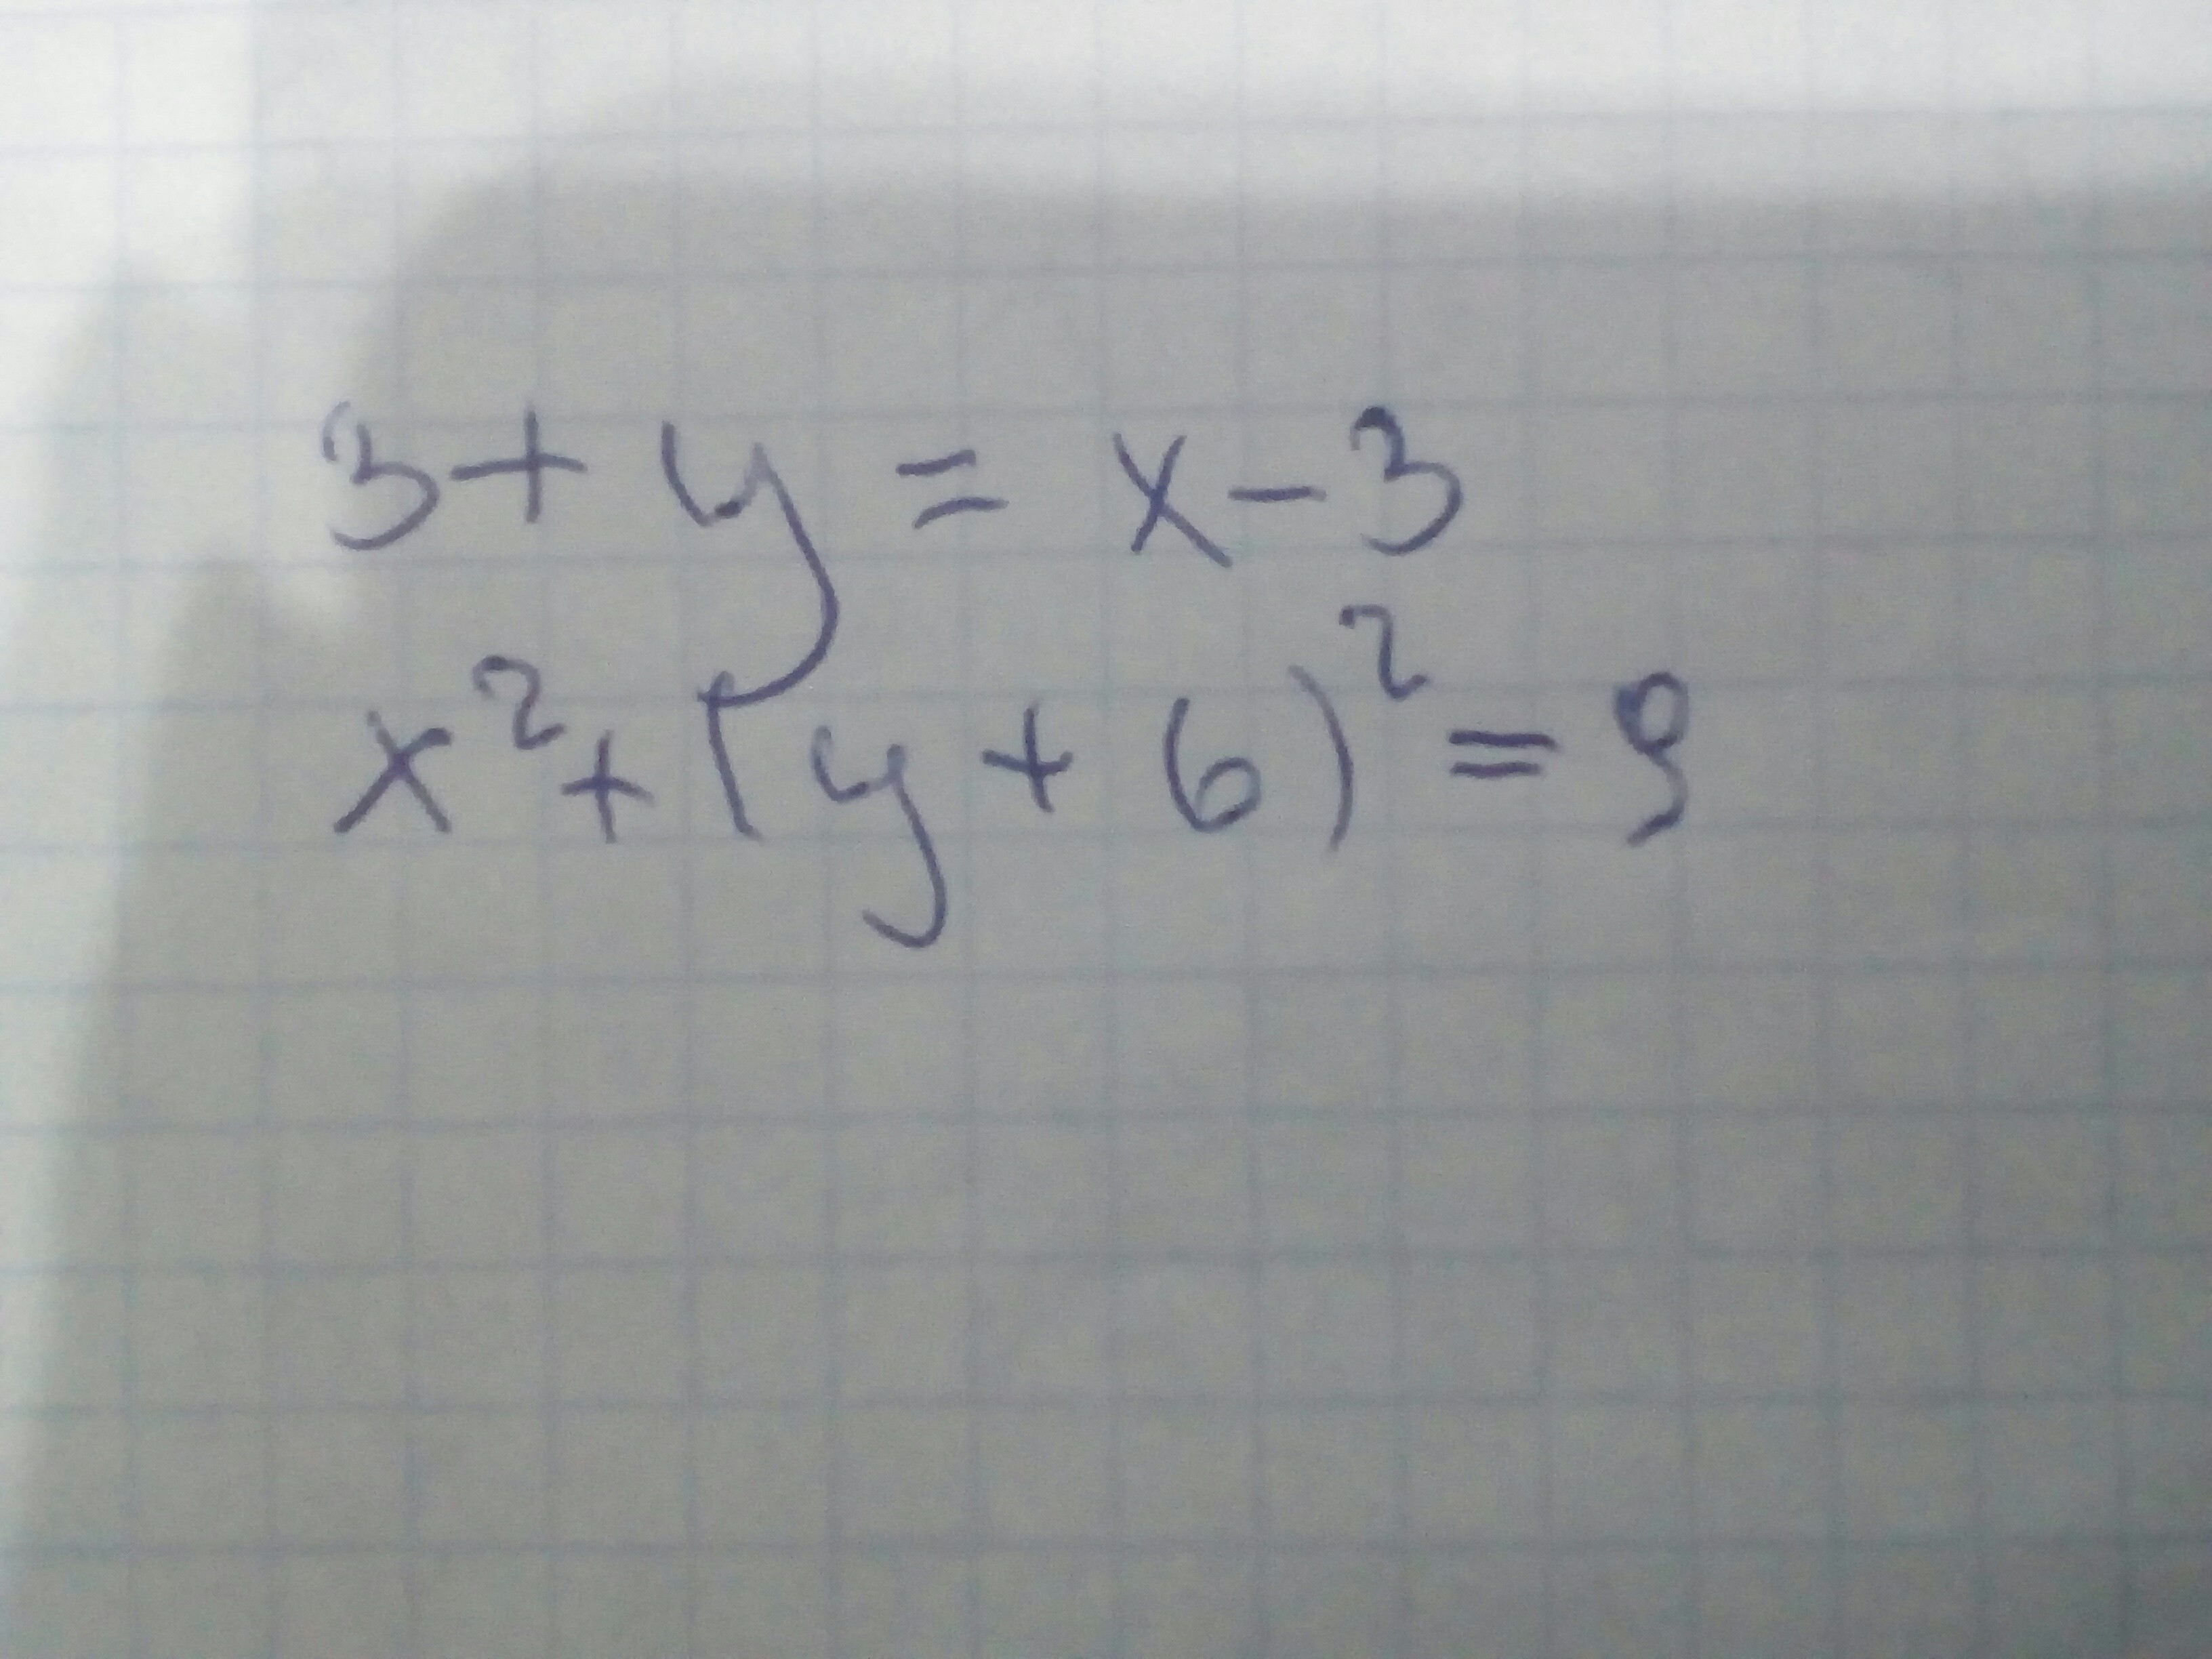 3 + y = x - 3
x² + (y + 6)² = 9